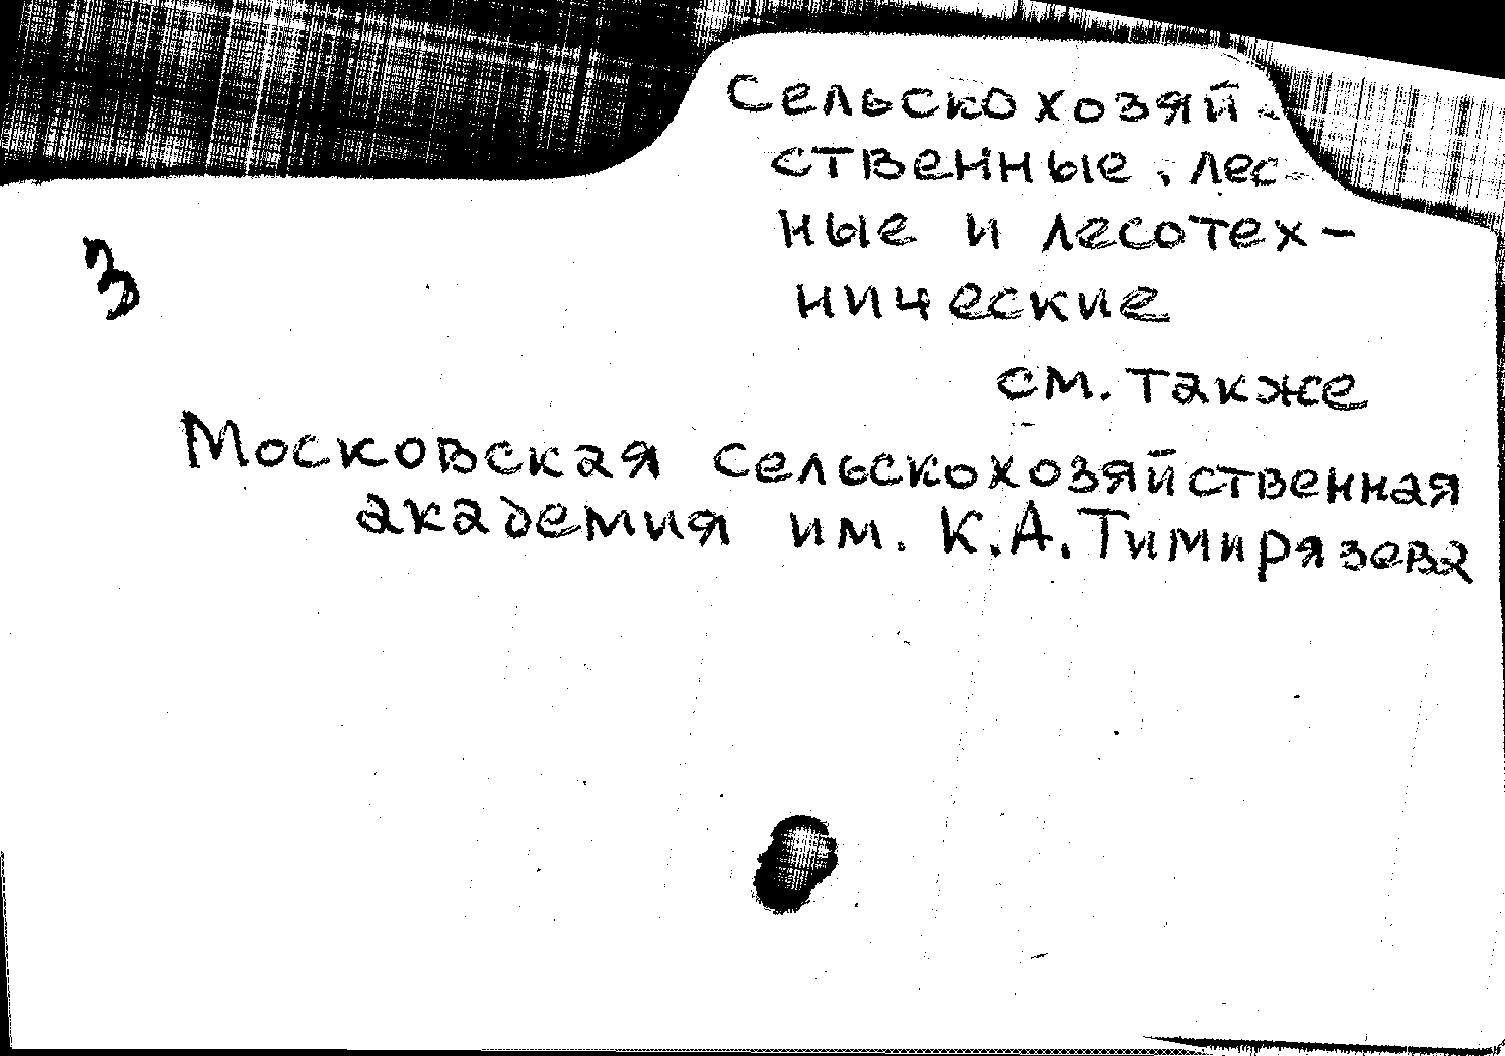 Сельскохозяй-
ственные, лес-
ные и лесотех-
нические
3
см. также
Московская сельскохозяйственная
академия им. К.А.Тимирязева